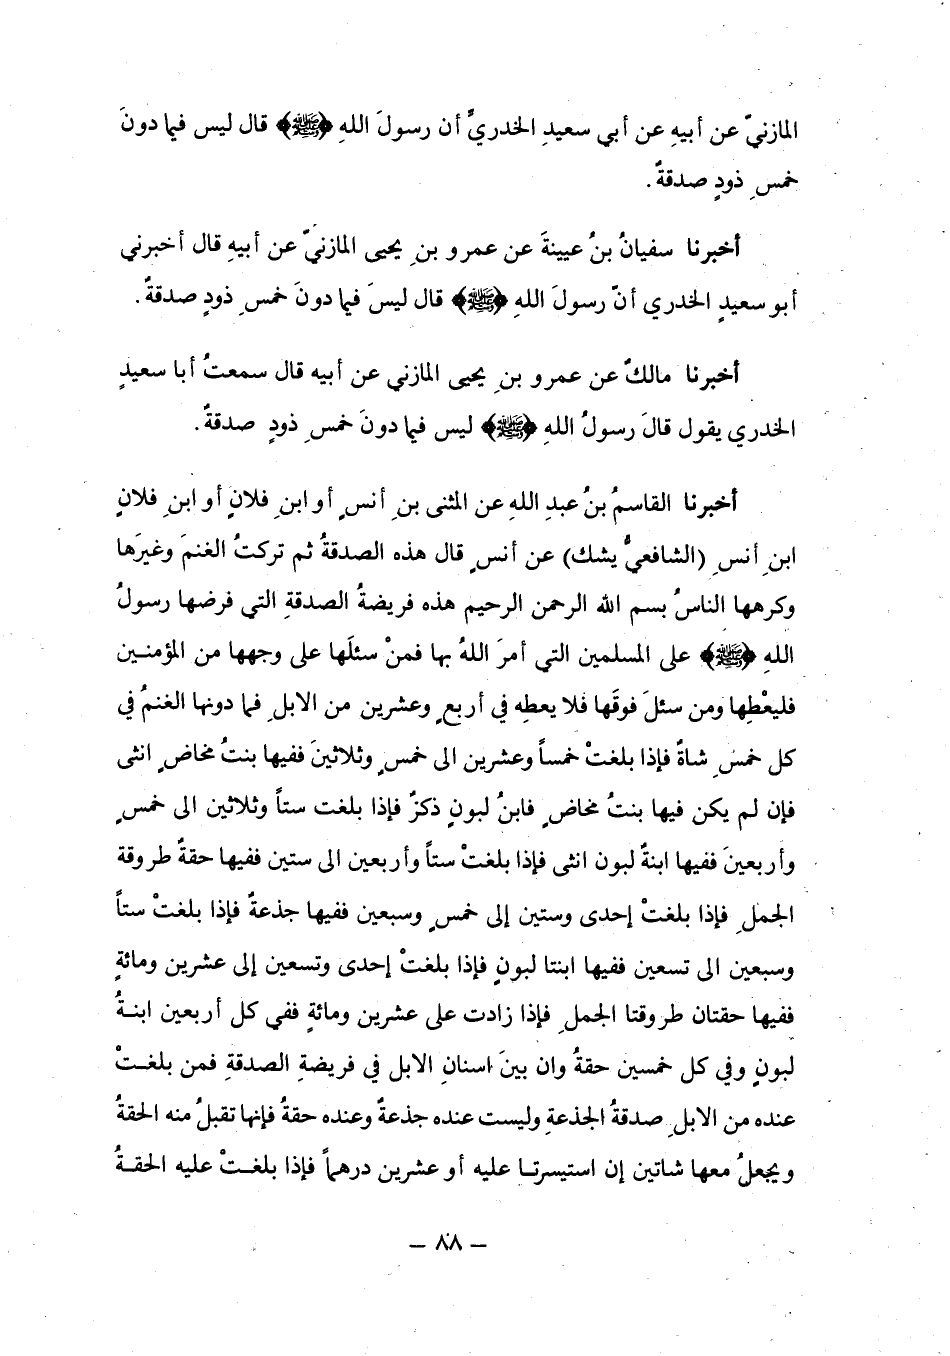 المازنيّ عن أبيهِ عن أبي سعيدِ الخدريِّ أن رسولَ اللهِ ﴿ﷺ﴾ قال ليس فيما دونَ
خمسِ ذودٍ صدقةٌ.
أخبرنا سفيانُ بنُ عيينةَ عن عمرو بنِ يحيى المازنيّ عن أبيهِ قال أخبرني
أبو سعيدٍ الخدري أنّ رسولَ اللهِ ﴿ﷺ﴾ قال ليسَ فيما دونَ خمسِ ذودٍ صدقةٌ.
أخبرنا مالكٌ عن عمرو بنِ يحيى المازني عن أبيه قال سمعتُ أبا سعيدٍ
الخدري يقول قالَ رسولُ اللهِ ﴿ﷺ﴾ ليس فيما دونَ خمسِ ذودٍ صدقةٌ.
أخبرنا القاسمُ بنُ عبدِ اللهِ عن المثنى بنِ أنسٍ أو ابنِ فلانٍ أو ابنِ فلانٍ
ابنِ أنسِ (الشافعيُّ يشك) عن أنسٍ قال هذه الصدقةُ ثم تركتُ الغنمَ وغيرَها
وكرهها الناسُ بسم الله الرحمن الرحيم هذه فريضةُ الصدقةِ التي فرضها رسولُ
اللهِ ﴿ﷺ﴾ على المسلمين التي أمرَ اللهُ بها فمنْ سئلَها على وجهها من المؤمنين
فليعْطِها ومن سئلَ فوقَها فلا يعطِه في أربعٍ وعشرين من الابلِ فما دونها الغنمُ في
كل خمسِ شاةٌ فإذا بلغتْ خمساً وعشرين الى خمسٍ وثلاثينَ ففيها بنتُ مخاضٍ انثى
فإن لم يكن فيها بنتُ مخاضٍ فابنُ لبونٍ ذكرٌ فإذا بلغت ستاً وثلاثين الى خمسٍ
وأربعينَ ففيها ابنةُ لبون انثى فإذا بلغتْ ستاً وأربعين الى ستين ففيها حقةٌ طروقة
الجملِ فإذا بلغتْ إحدى وستين إلى خمسٍ وسبعين ففيها جذعةٌ فإذا بلغتْ ستاً
وسبعين الى تسعين ففيها ابنتا لبونٍ فإذا بلغتْ إحدى وتسعين إلى عشرين ومائةٍ
ففيها حقتان طروقتا الجملِ فإذا زادت على عشرين ومائةٍ ففي كل أربعين ابنةُ
لبونٍ وفي كل خمسين حقةُ وان بينَ اسنانِ الابل في فريضةِ الصدقةِ فمن بلغتْ
عنده من الابلِ صدقةُ الجذعةِ وليست عنده جذعةٌ وعنده حقةُ فإنها تقبلُ منه الحقةُ
ويجعلُ معها شاتين إن استيسرتا عليه أو عشرين درهماً فإذا بلغتْ عليه الحقةُ
— ٨٨ —